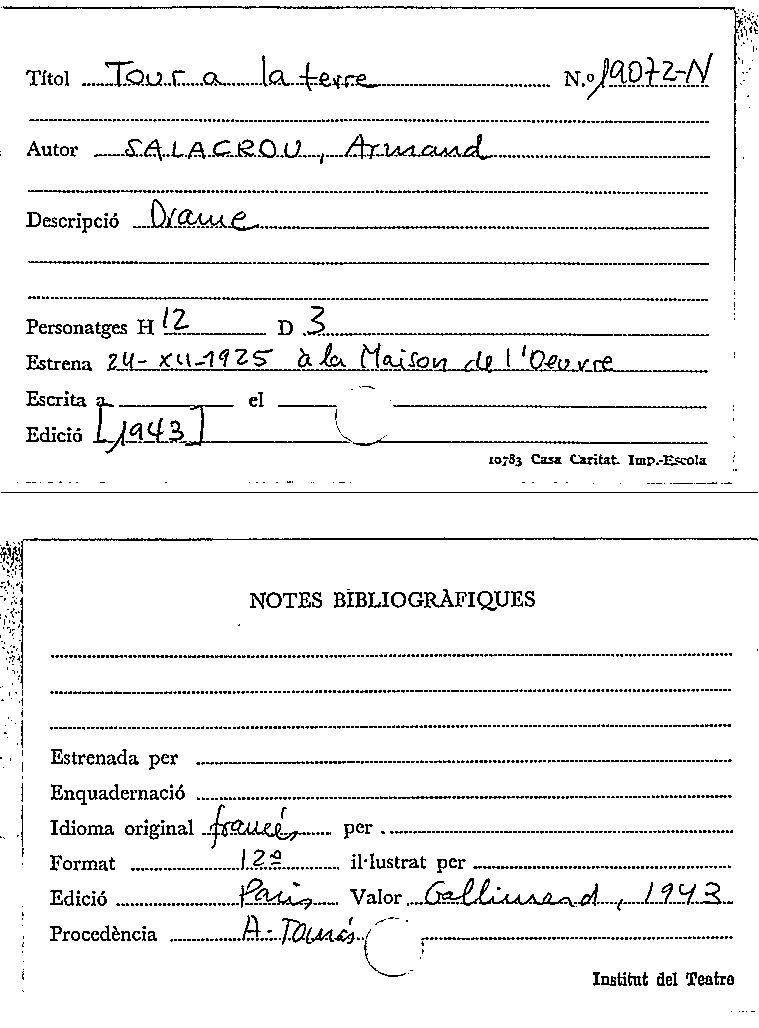 Títol Tour a la terre N.º 19072-N
Autor SALACROU, Armand
Descripció Drame
Personatges H 12 D 3
Estrena 24-XII-1925 à la Maison de l'Oeuvre
Escrita a el
Edició [1943]
10783 Casa Caritat. Imp.-Escola
NOTES BIBLIOGRÀFIQUES
Estrenada per
Enquadernació
Idioma original francés per
Format 12º il·lustrat per
Edició Paris Valor Gallimard, 1943
Procedència A. Tomás
Institut del Teatre